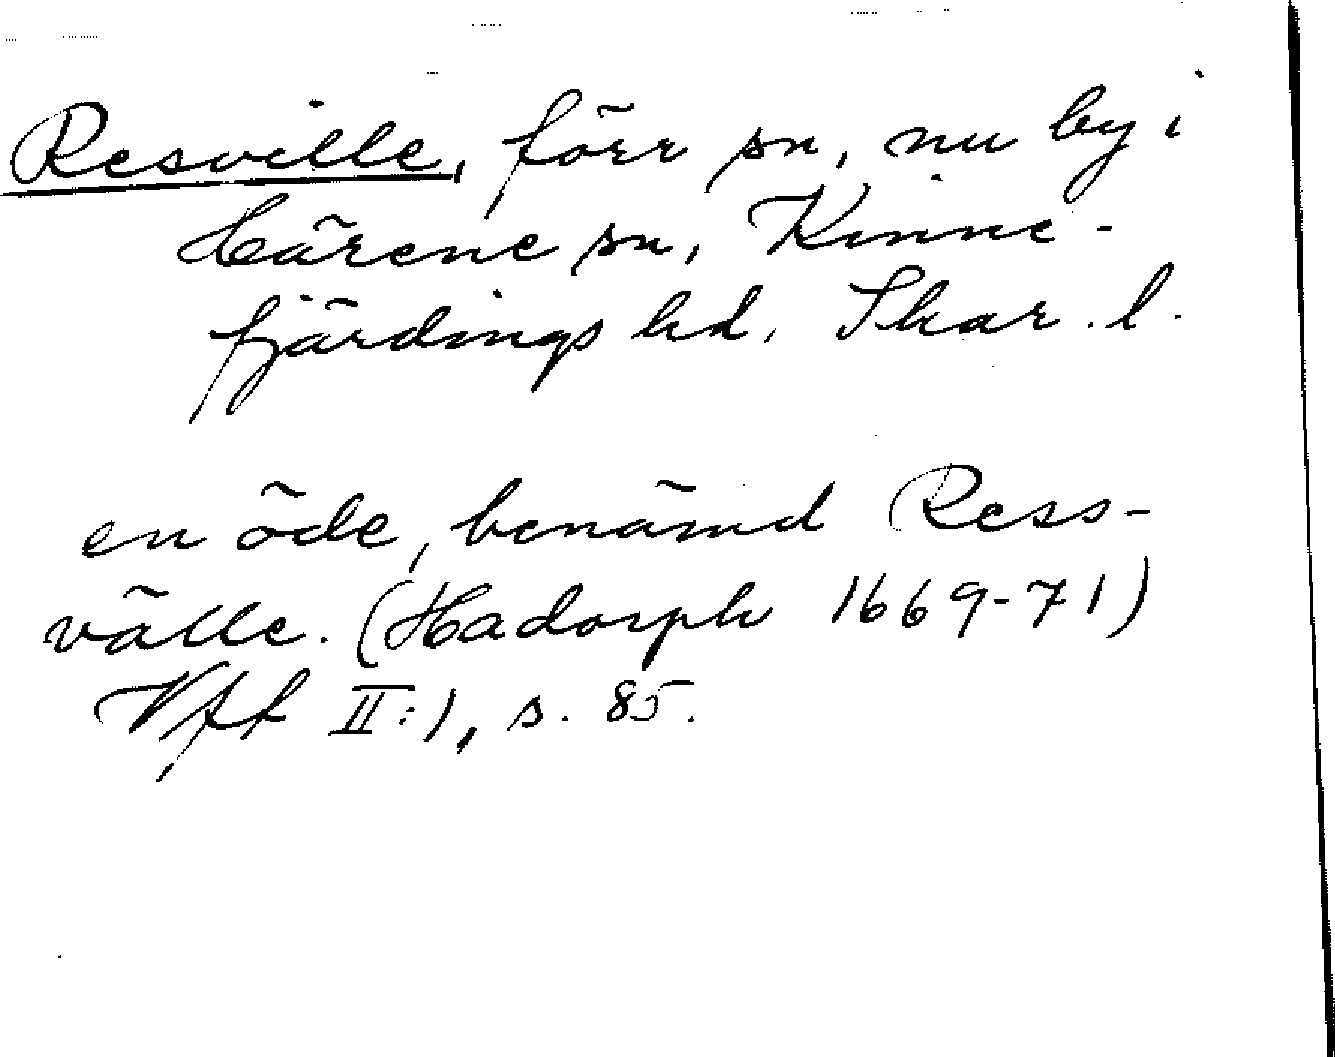 Resville, förr sn, nu by i
Härene sn, Kinne-
fjärdings hd, Skar. l.
en öde, benämd Ress-
välle. (Hadorph 1669-71)
Vff II:1, s. 85.